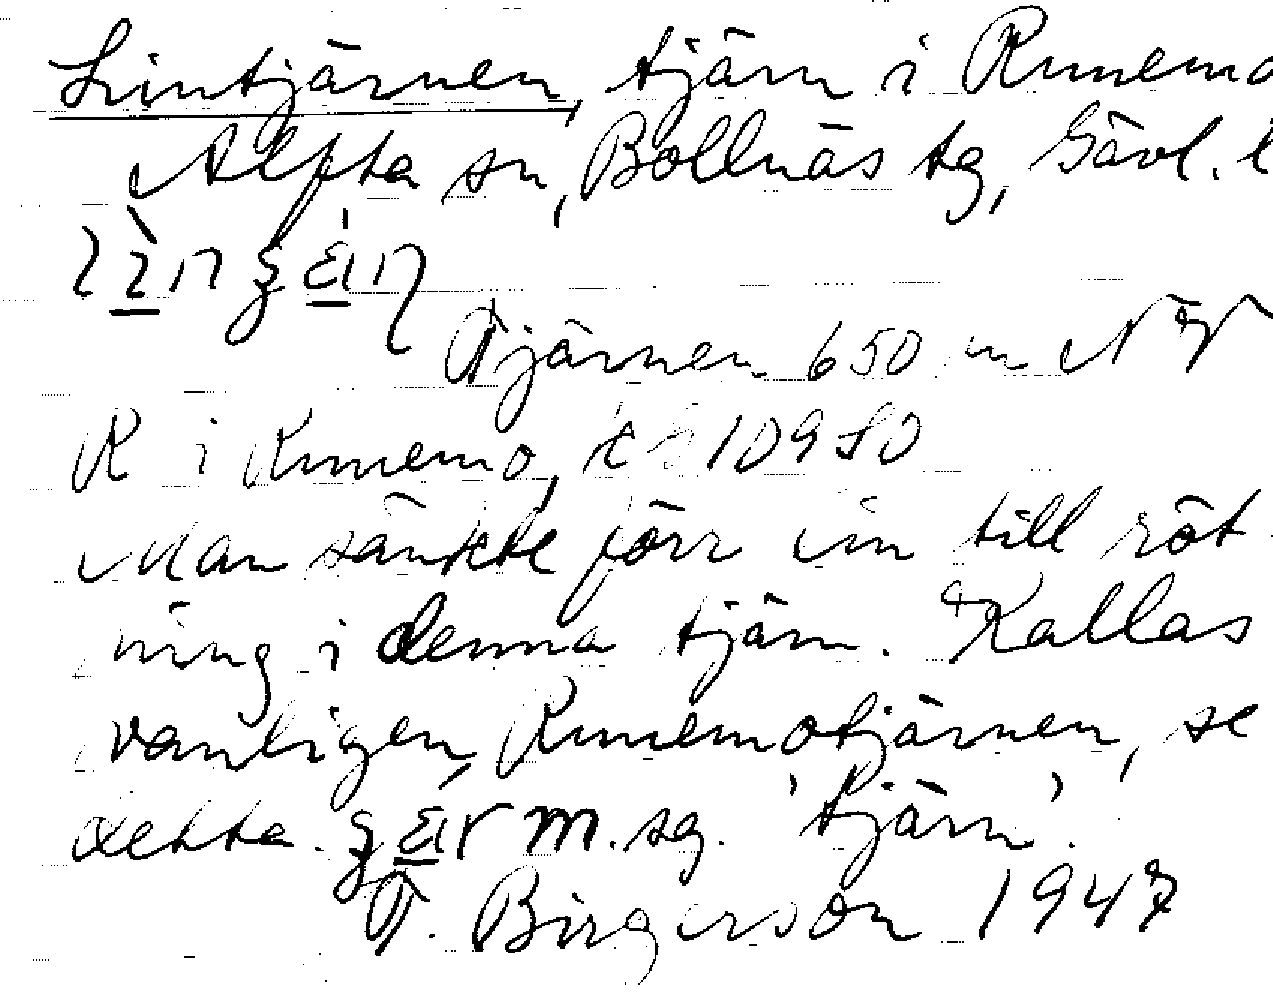 Lintjärnen, tjärn i Runemo
Alfta sn, Bollnäs tg, Gävl. l
Tjärnen 650 m NV
R i Runemo, 10950
Man sänkte förr lin till röt
ning i denna tjärn. Kallas
vanligen Runemotjärnen, se
detta. m. sg. 'tjärn'.
T. Birgerson 1947